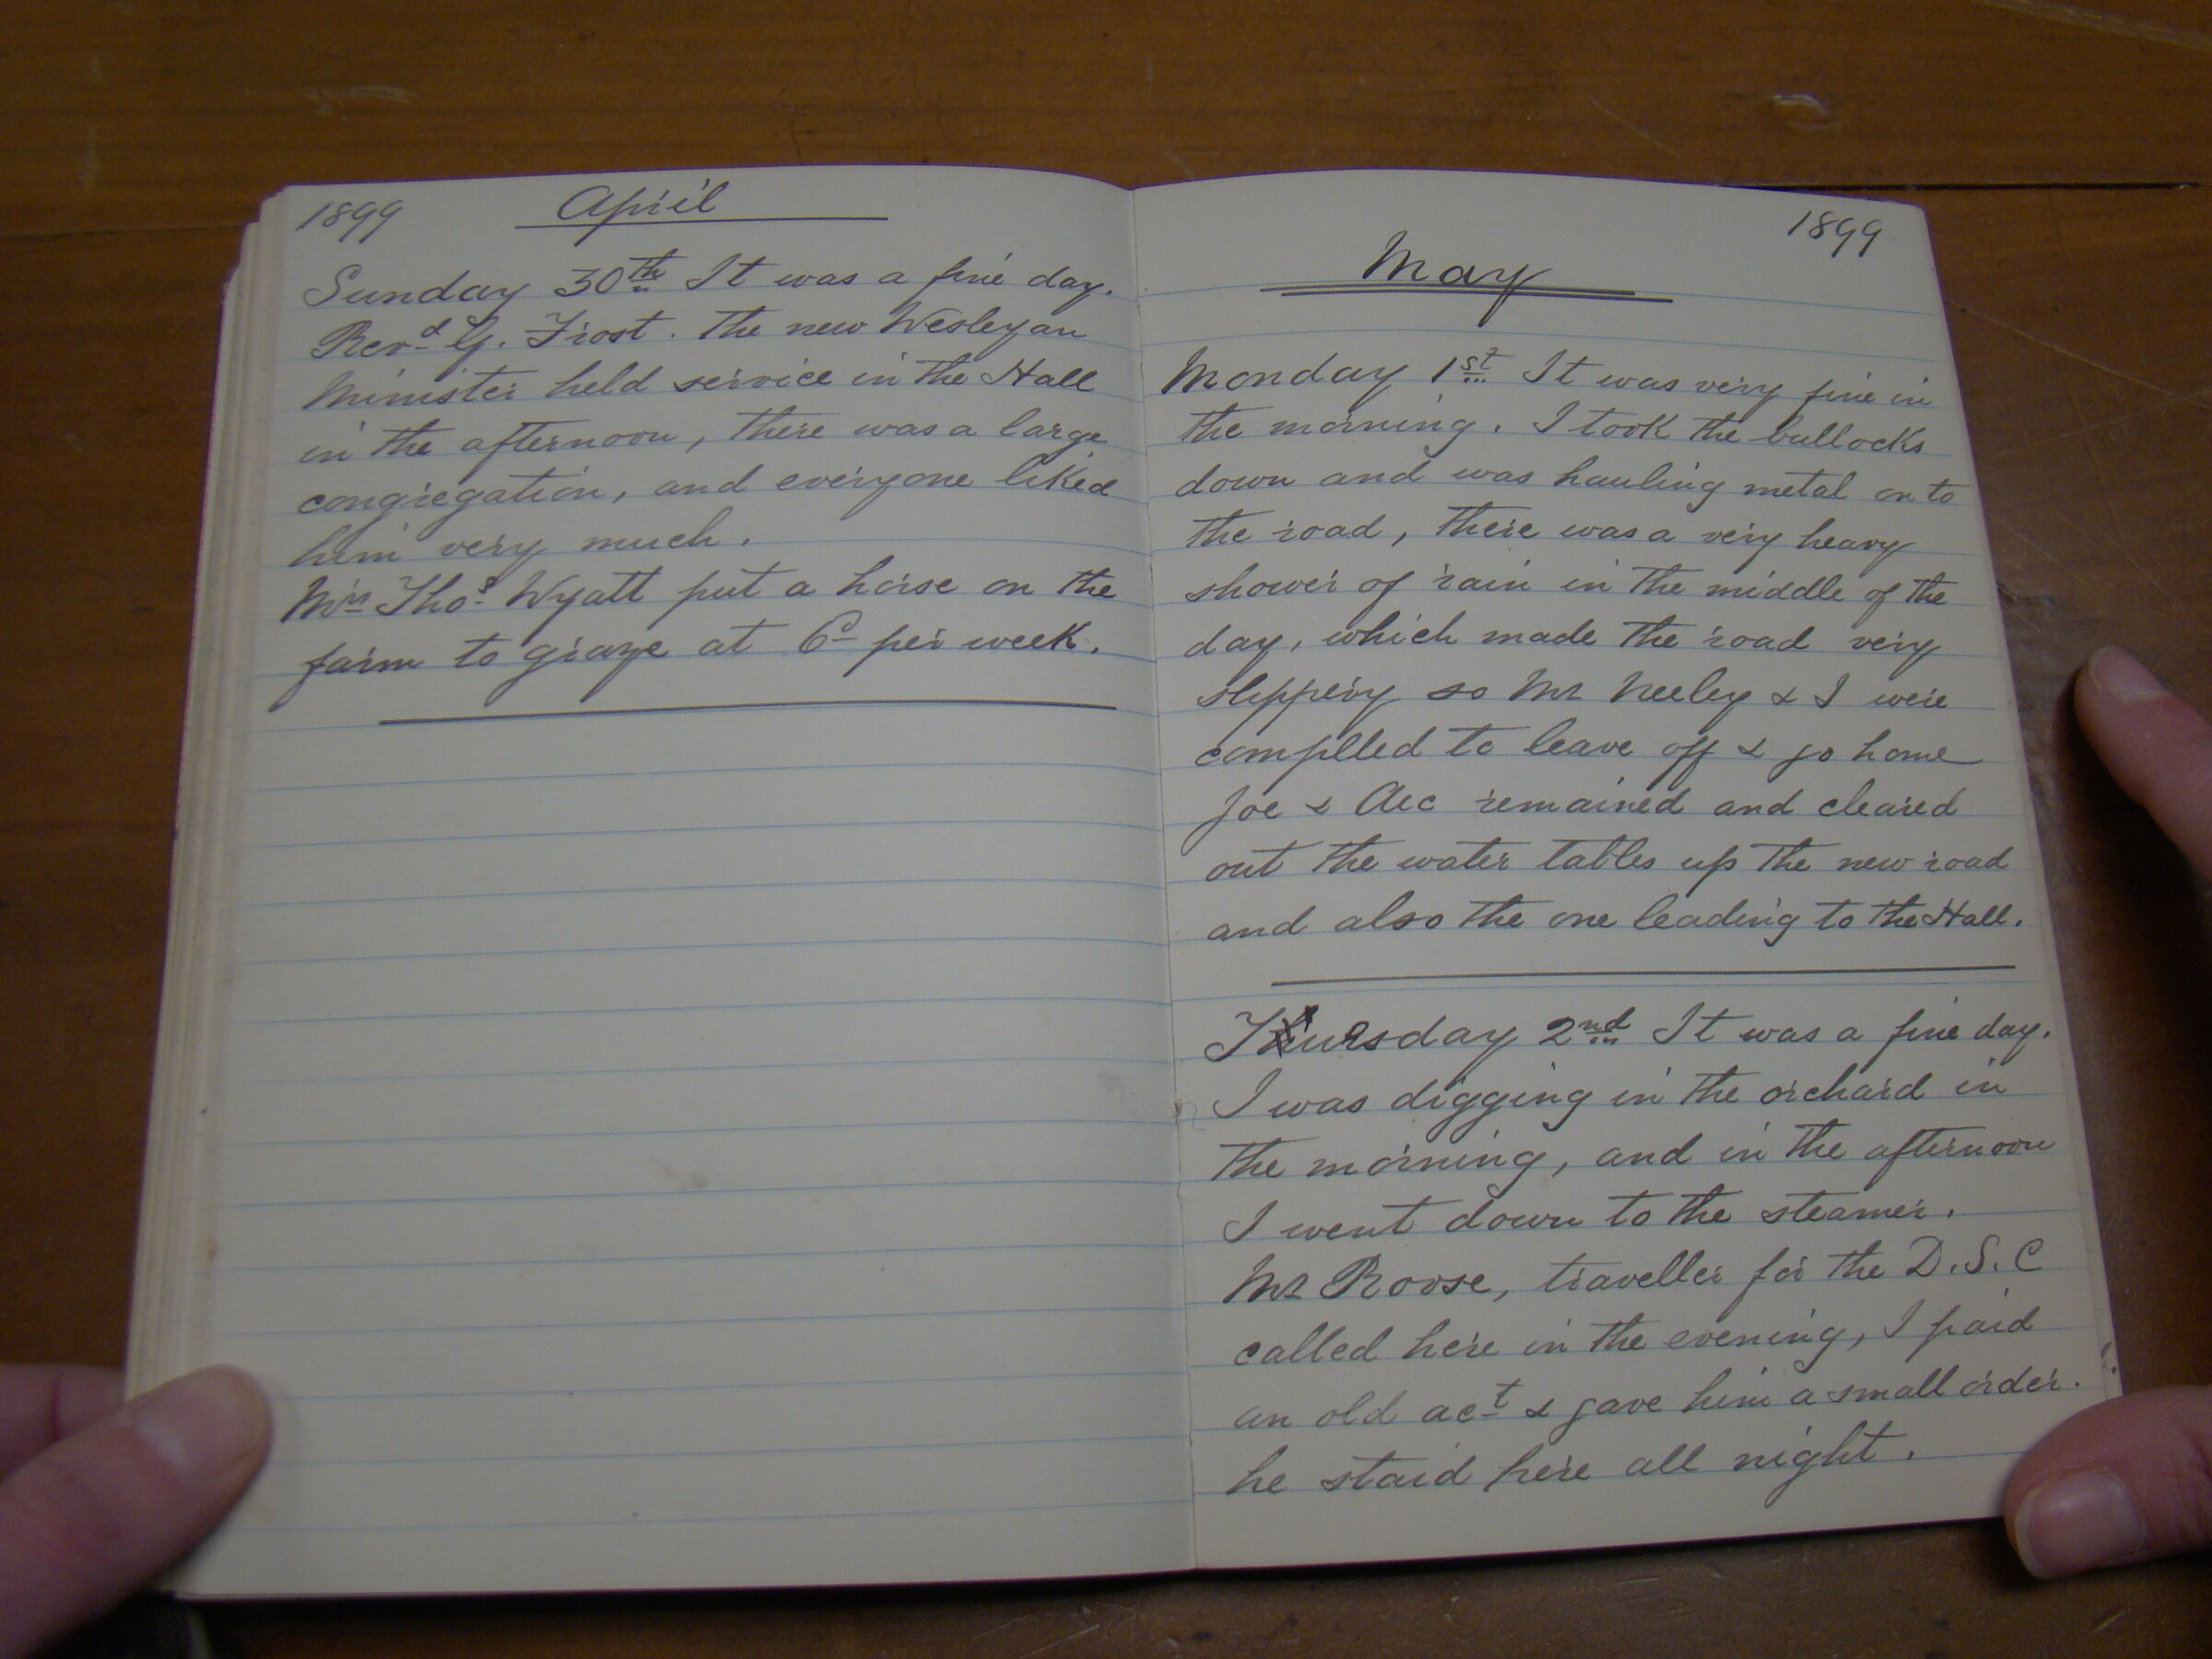 1899 April
Sunday 30th It was a fine day.
Revd G. Frost. The new Wesleyan
Minister held service in the Hall
in the afternoon, there was a large
congregation, and everyone liked
him very much.
Mrs Thos Wyatt put a horse on the
farm to graze at 6d per week.
1899
May
Monday 1st It was very fine in
the morning. I took the bullocks
down and was hauling metal on to
the road, there was a very heavy
shower of rain in the middle of the
day, which made the road very
slippery so Mr Neeley & I were
complled to leave off & go home
Joe & Alec remained and cleared
out the water tables up the new road
and also the one leading to the Hall.
Tuesday 2nd It was a fine day.
I was digging in the orchard in
the morning, and in the afternoon
I went down to the steamer.
Mr Roose, traveller for the D.S.C
called here in the evening, I paid
an old act & gave him a small order.
he staid here all night.